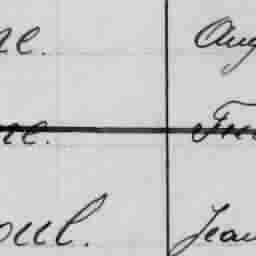 ne. Aug
ne.
oul. Jean